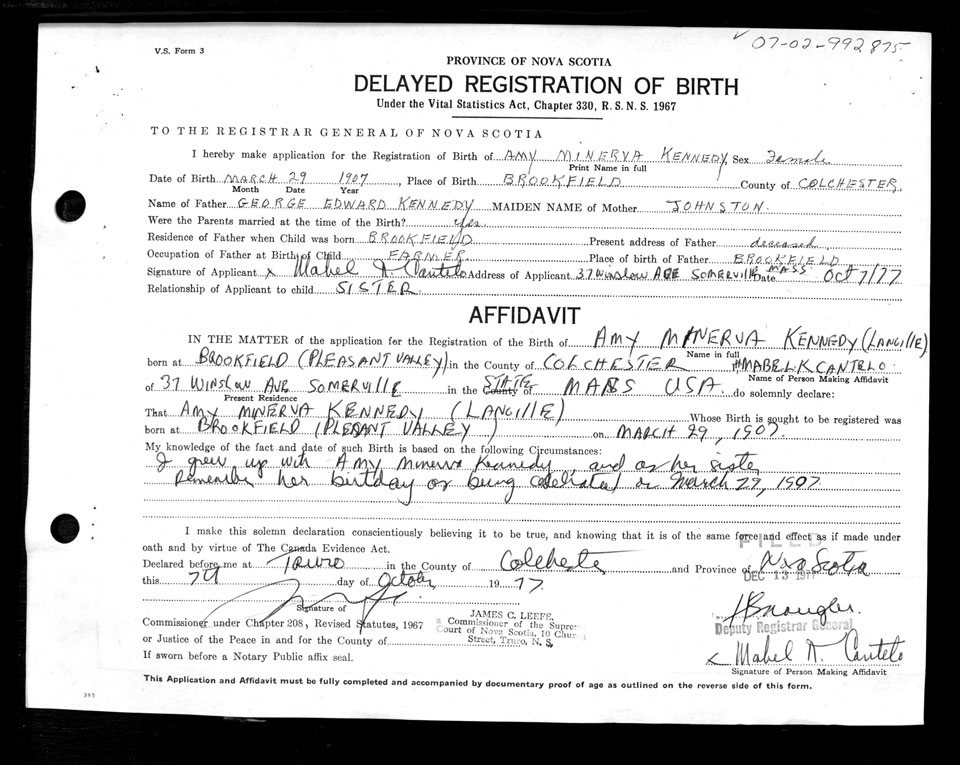 07-02-992875
V.S. Form 3
PROVINCE OF NOVA SCOTIA
DELAYED REGISTRATION OF BIRTH
Under the Vital Statistics Act, Chapter 330, R.S.N.S. 1967
TO THE REGISTRAR GENERAL OF NOVA SCOTIA
I hereby make application for the Registration of Birth of AMY MINERVA KENNEDY, Sex Female
Print Name in full
Date of Birth MARCH 29 1907, Place of Birth BROOKFIELD County of COLCHESTER
Month Date Year
Name of Father GEORGE EDWARD KENNEDY MAIDEN NAME of Mother JOHNSTON
Were the Parents married at the time of the Birth? yes
Residence of Father when Child was born BROOKFIELD Present address of Father deceased
Occupation of Father at Birth of Child FARMER Place of birth of Father BROOKFIELD
Signature of Applicant x Mabel K Cantelo Address of Applicant 37 Winslow AVE SOMERVILLE MASS Date Oct 7/77
Relationship of Applicant to child SISTER
AFFIDAVIT
IN THE MATTER of the application for the Registration of Birth of AMY MINERVA KENNEDY (LANGILLE)
Name in full
born at BROOKFIELD (PLEASANT VALLEY) in the County of COLCHESTER MABEL K CANTELO
Name of Person Making Affidavit
of 37 WINSLOW AVE SOMERVILLE in the County of STATE MASS USA do solemnly declare:
Present Residence
That AMY MINERVA KENNEDY (LANGILLE) Whose Birth is sought to be registered was
born at BROOKFIELD (PLESANT VALLEY) on MARCH 29, 1907.
My knowledge of the fact and date of such Birth is based on the following Circumstances:
I grew up with Amy Minerva Kennedy, and as her sister
Remember her birtday as being celebrated on March 29, 1907
I make this solemn declaration conscientiously believing it to be true, and knowing that it is of the same force and effect as if made under
oath and by virtue of The Canada Evidence Act.
FILED
Declared before me at Truro in the County of Colchester and Province of Nova Scotia
DEC 13 1977
this 7th day of October 1977
Signature of
Commissioner under Chapter 208, Revised Statutes, 1967
or Justice of the Peace in and for the County of
If sworn before a Notary Public affix seal.
JAMES C. LEEFE,
a Commissioner of the Supreme
Court of Nova Scotia, 10 Church
Street, Truro, N. S.
Deputy Registrar General
x Mabel K. Cantelo
Signature of Person Making Affidavit
This Application and Affidavit must be fully completed and accompanied by documentary proof of age as outlined on the reverse side of this form.